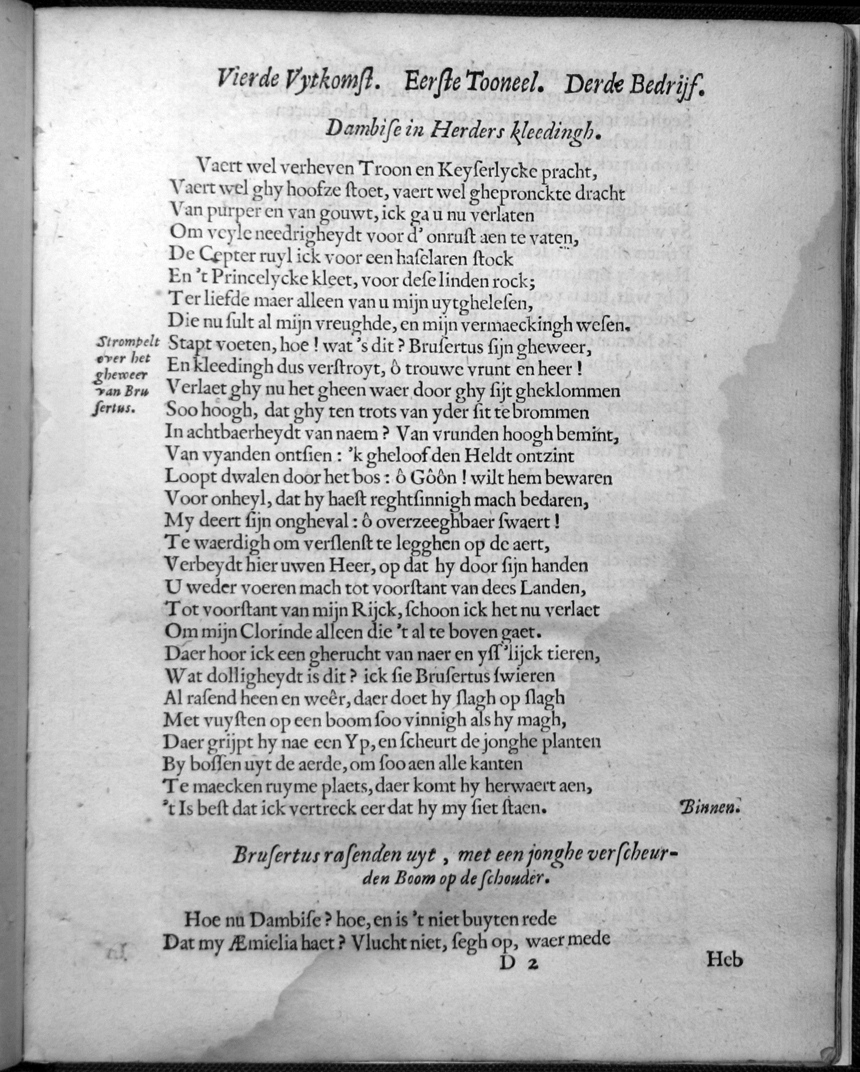 Vierde Vytkomſt. Eerſte Tooneel. Derde Bedrijf.
Dambiſe in Herders kleedingh.
Vaert wel verheven Troon en Keyſerlycke pracht,
Vaert wel ghy hoofze ſtoet, vaert wel ghepronckte dracht
Van purper en van gouwt, ick ga u nu verlaten
Om veyle needrigheydt voor d' onruſt aen te vaten,
De Cepter ruyl ick voor een haſelaren ſtock
En 't Princelycke kleet, voor deſe linden rock;
Ter liefde maer alleen van u mijn uytgheleſen,
Die nu ſult al mijn vreughde, en mijn vermaeckingh weſen.
Strompelt over het gheweer van Bruſertus.
Stapt voeten, hoe ! wat 's dit ? Bruſertus ſijn gheweer,
En kleedingh dus verſtroyt, ô trouwe vrunt en heer !
Verlaet ghy nu het gheen waer door ghy ſijt gheklommen
Soo hoogh, dat ghy ten trots van yder ſit te brommen
In achtbaerheydt van naem ? Van vrunden hoogh bemint,
Van vyanden ontſien : 'k gheloof den Heldt ontzint
Loopt dwalen door het bos : ô Gôôn ! wilt hem bewaren
Voor onheyl, dat hy haeſt reghtſinnigh mach bedaren,
My deert ſijn ongheval : ô overzeeghbaer ſwaert !
Te waerdigh om verſlenſt te legghen op de aert,
Verbeydt hier uwen Heer, op dat hy door ſijn handen
U weder voeren mach tot voorſtant van dees Landen,
Tot voorſtant van mijn Rijck, ſchoon ick het nu verlaet
Om mijn Clorinde alleen die 't al te boven gaet.
Daer hoor ick een gherucht van naer en yſſ'lijck tieren,
Wat dolligheydt is dit ? ick ſie Bruſertus ſwieren
Al raſend heen en weêr, daer doet hy ſlagh op ſlagh
Met vuyſten op een boom ſoo vinnigh als hy magh,
Daer grijpt hy nae een Yp, en ſcheurt de jonghe planten
By boſſen uyt de aerde, om ſoo aen alle kanten
Te maecken ruyme plaets, daer komt hy herwaert aen,
't Is beſt dat ick vertreck eer dat hy my ſiet ſtaen. Binnen.
Bruſertus raſenden uyt , met een jonghe verſcheur-
den Boom op de ſchouder.
Hoe nu Dambiſe ? hoe, en is 't niet buyten rede
Dat my Æmielia haet ? Vlucht niet, ſegh op, waer mede
D 2 Heb